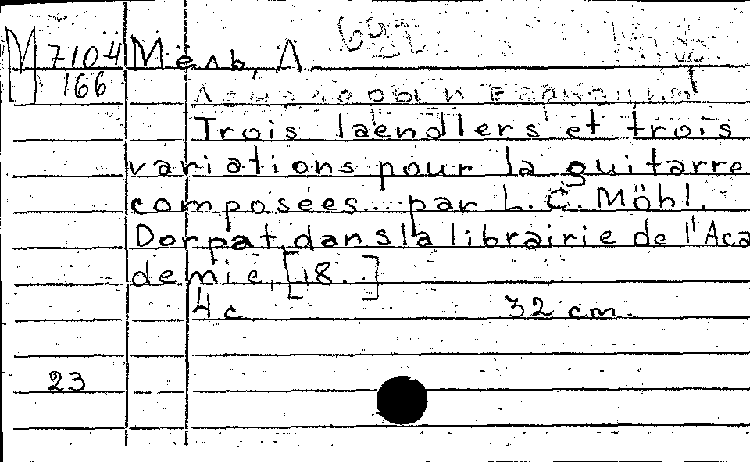 М 7104 Мель, Л.
166
Trois laendlers et trois
variations pour la guitarre
composées... par L. C. Möhl.
Dorpat, dans la librairie de l'Aca
demie, [18..]
4 c 32 cm.
23